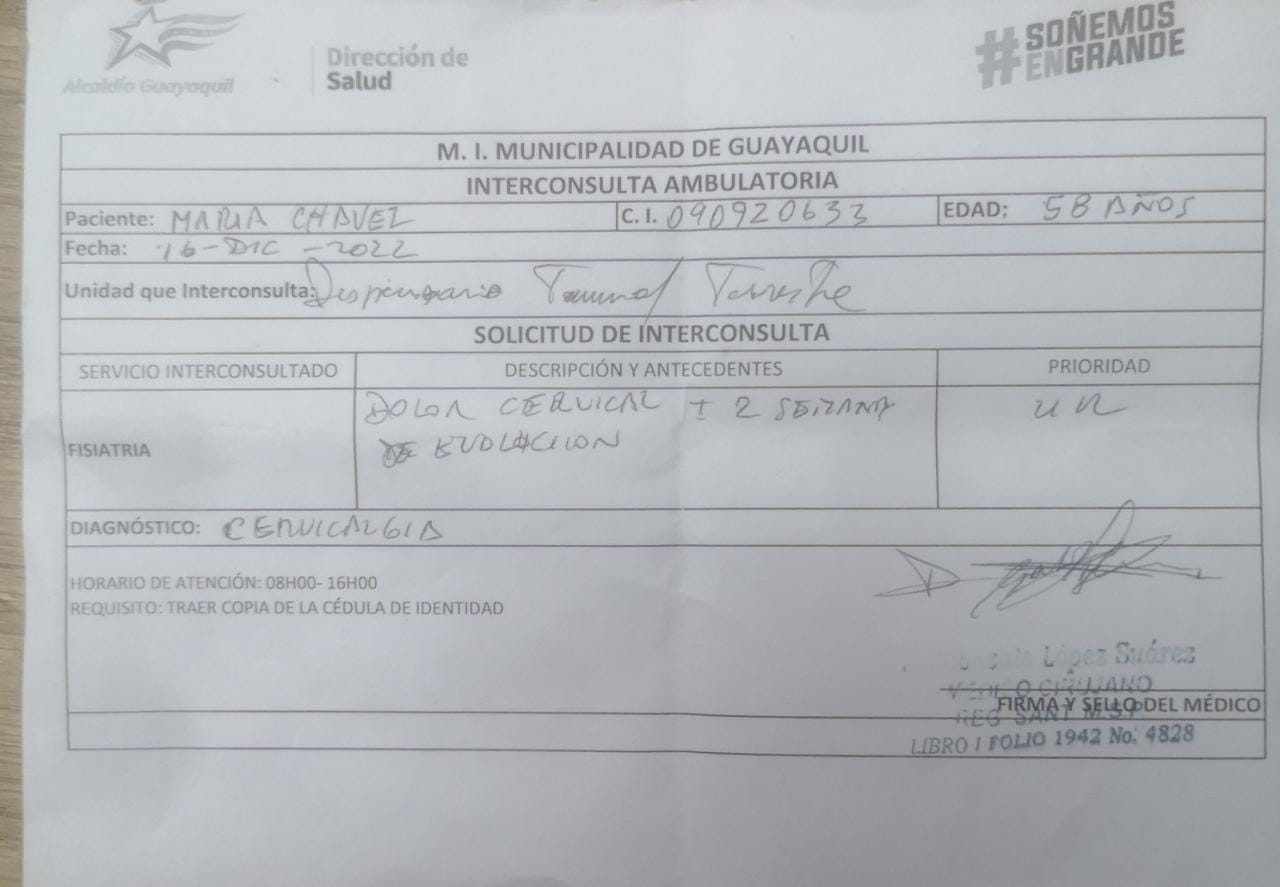 Alcaldía Guayaquil
Dirección de
Salud
#SOÑEMOS
ENGRANDE
M. I. MUNICIPALIDAD DE GUAYAQUIL
INTERCONSULTA AMBULATORIA
Paciente: MARIA CHAVEZ C. I. 090920633 EDAD: 58 AÑOS
Fecha: 16-DIC-2022
Unidad que Interconsulta: Dispensario Terminal Terrestre
SOLICITUD DE INTERCONSULTA
SERVICIO INTERCONSULTADO DESCRIPCIÓN Y ANTECEDENTES PRIORIDAD
DOLOR CERVICAL ± 2 SEMANA
DE EVOLUCION
FISIATRIA
DIAGNÓSTICO: CERVICALGIA
HORARIO DE ATENCIÓN: 08H00- 16H00
REQUISITO: TRAER COPIA DE LA CÉDULA DE IDENTIDAD
López Suárez
CIRUJANO
FIRMA Y SELLO DEL MÉDICO
REG SANT M.S.P.
LIBRO I FOLIO 1942 No. 4828